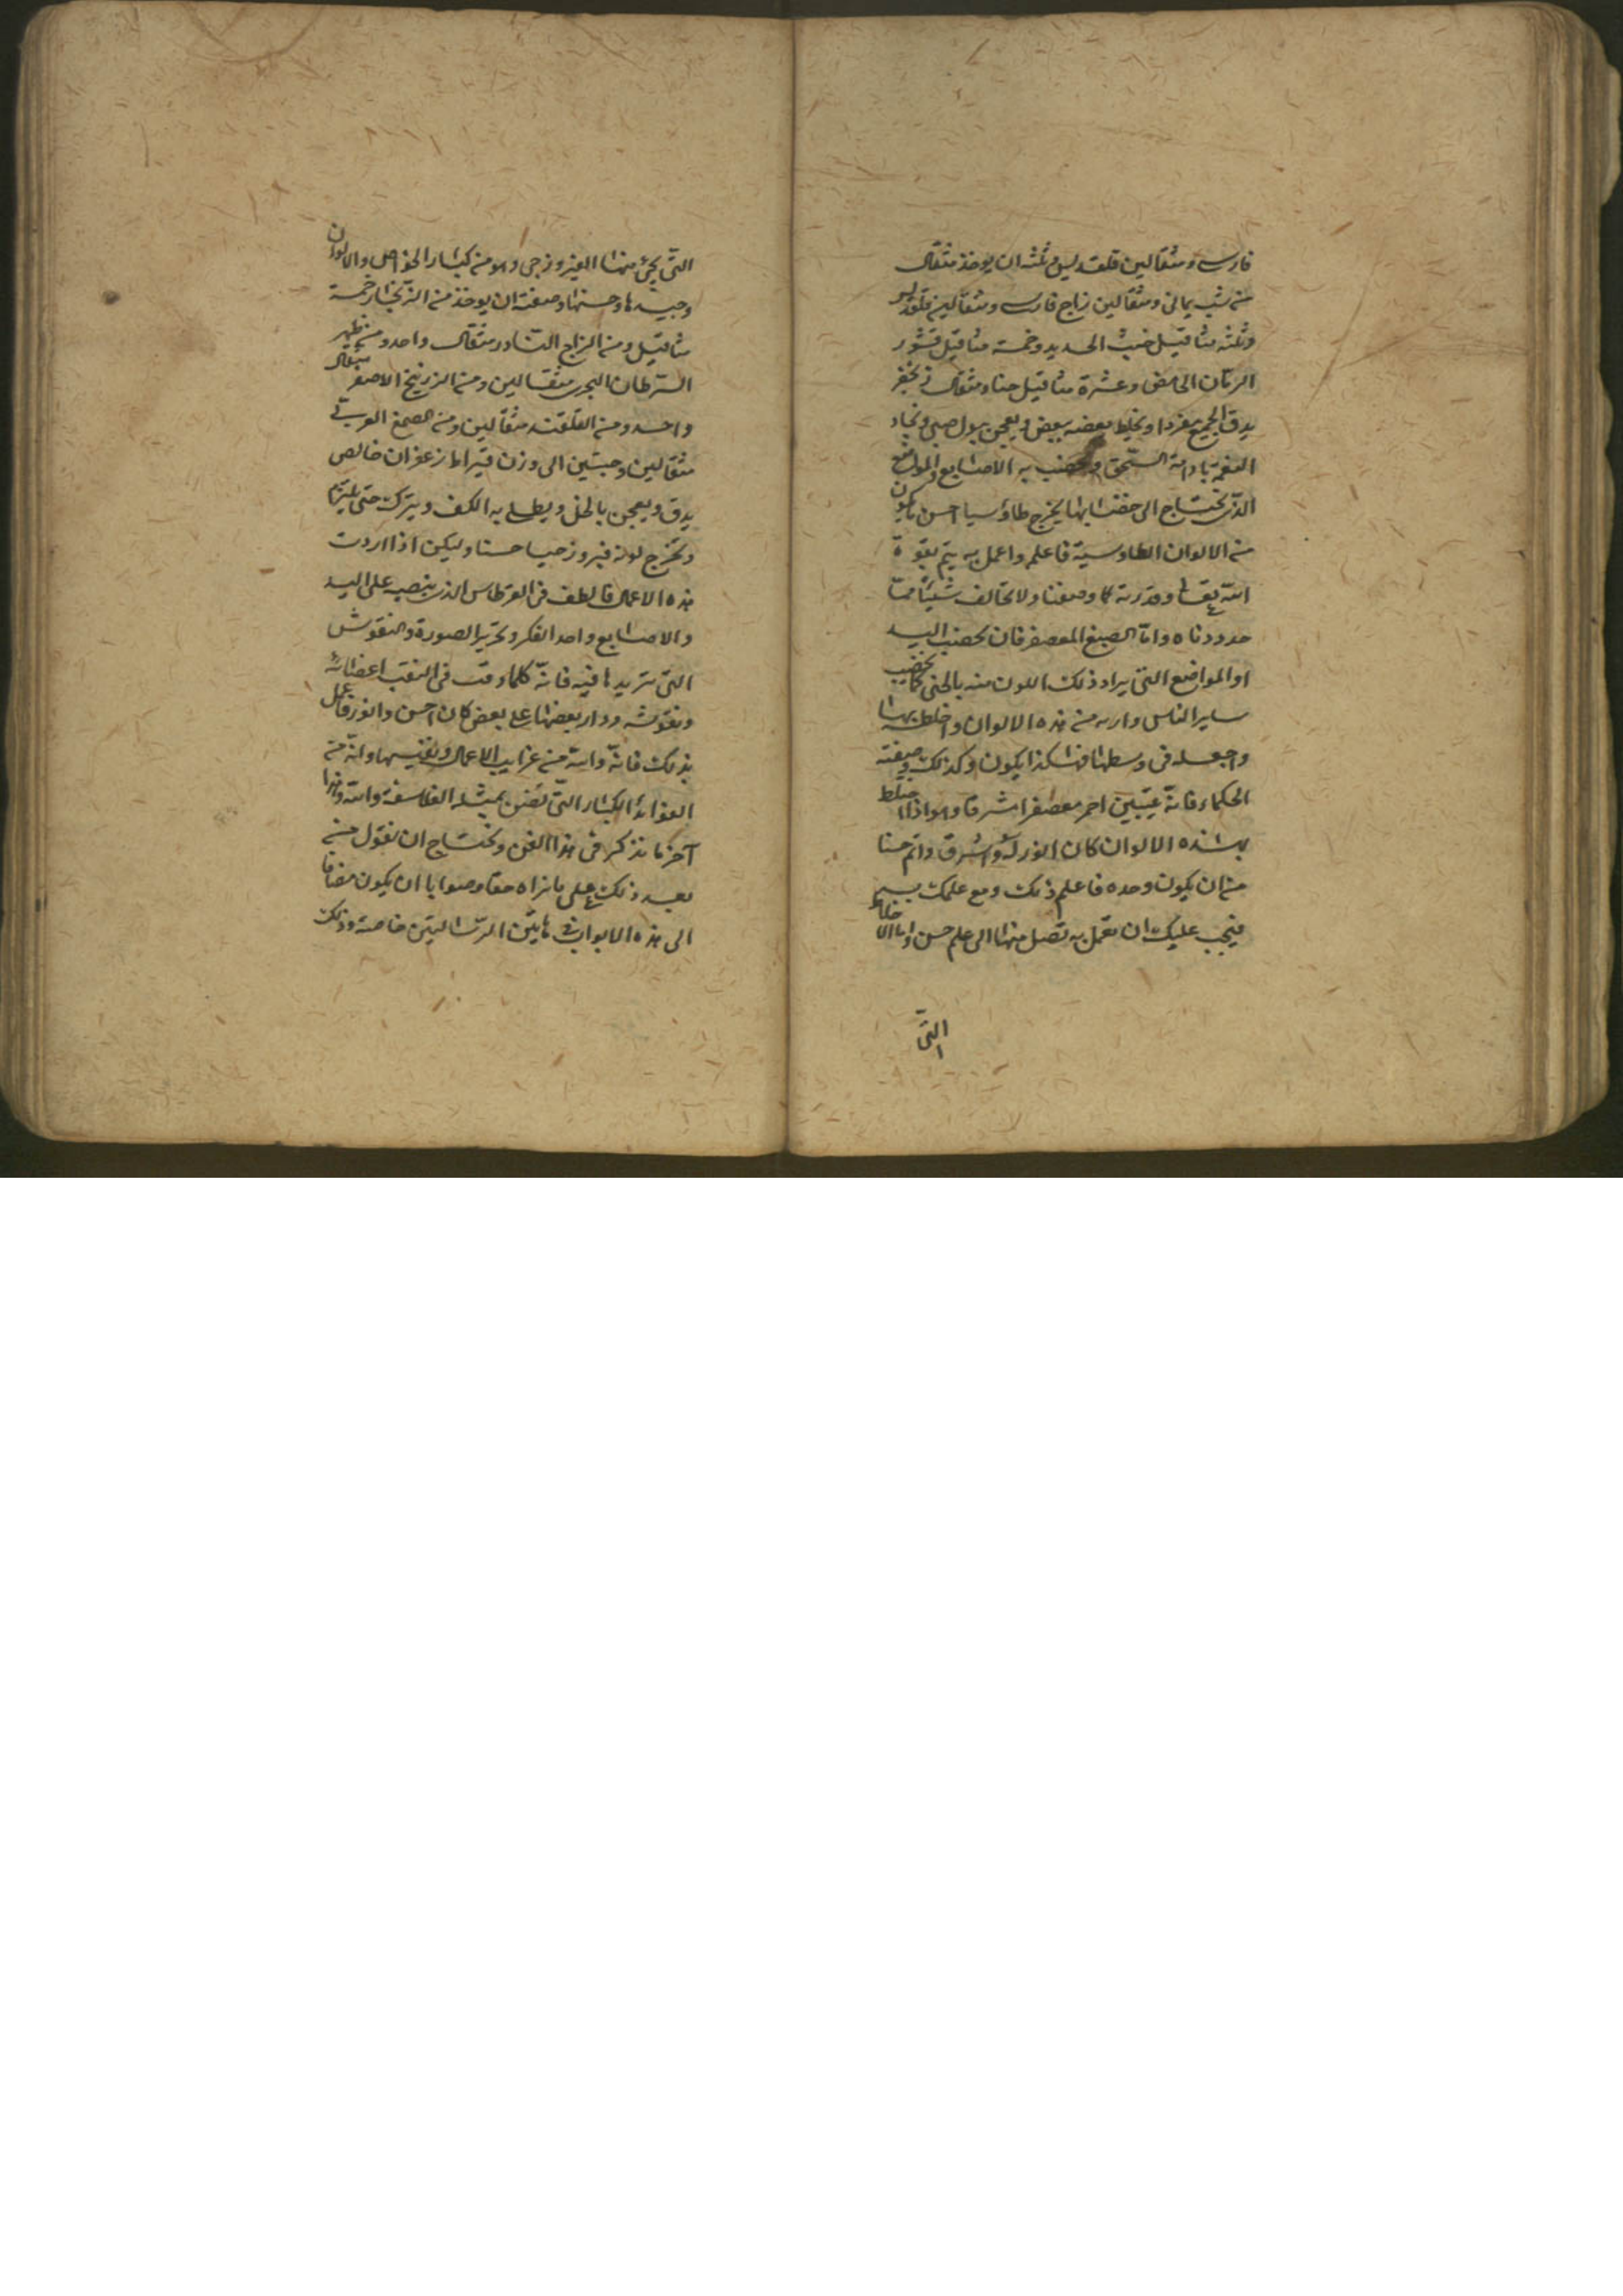 فارسى ومثقالين قلقديس وثلثه ان يوخذ مثقال
من شب يمانى ومثقالين زاج فارسى ومثقالين قلقديس
وثلثه مثاقيل خبث الحديد وخمسة مثاقيل قشور
الرمان الحامض وعشرة مثاقيل حنا ومثقال زنجفر
يدق الجميع مفردا ويخلط بعضه ببعض ويعجن ببول صبى ويجاد
النعمة بادامة السحق ويخضب به الاصابع والمواضع
الذى يحتاج الى خضابها يخرج طاؤسيا احسن ما يكون
من الالوان الطاوسية فاعلم واعمل به يتم بقوة
الله تعالى وقدرته كما وصفنا ولا تخالف شيئا مما
حددناه واما الصبغ المعصفر فان يخضب اليد
او المواضع التى يراد ذلك اللون منه بالحنى كما يخضب
ساير الناس واره من هذه الالوان واخلط بها
واجعله فى وسطها فهكذا يكون وكذلك وصفته
الحكماء فانه احمر معصفرا مشرقا وهو اذا اختلط
بهذه الالوان كان انور له واشرق واتم حسنا
من ان يكون وحده فاعلم ذلك ومع علمك به
فيجب عليك ان تعمل به تصل منها الى علم حسن واما الاخلاط
التى
التى يجئ منها الفيروزجى وهو من كبار الخواص والالوان
وجيدها وحسنها وصفته ان يوخذ من الزنجار خمسة
مثاقيل ومن الزاج النادر مثقال واحد ومن
السرطان البحرى مثقالين ومن الزرنيخ الاصفر مثقال
واحد ومن القلقند مثقالين ومن الصمغ العربى
مثقالين وحبتين الى وزن قيراط زعفران خالص
يدق ويعجن بالخل ويطلى به الكف ويترك حتى
ويخرج لونه فيروزجيا حسنا وليكن اذا اردت
هذه الاعمال فالطف فى القرطاس الذى ينصب على اليد
والاصابع واحد الفكر وتحرير الصورة والنقوش
التى تريدها فيه فانه كلما دقت فى النقب اعضائه
ونقوشه ودار بعضها على بعض كان احسن وانور فاعمل
بذلك فانه والله من غرايب الاعمال ونفيسها وانه من
الفوائد الكبار التى تضن بمثله الفلاسفة والله وهذا
آخر ما نذكر فى هذا الفن ونحتاج ان نقول من
بعد ذلك على ما نراه حقا وصوابا ان يكون مضافا
الى هذه الابواب فى هاتين الرسالتين خاصة وذلك